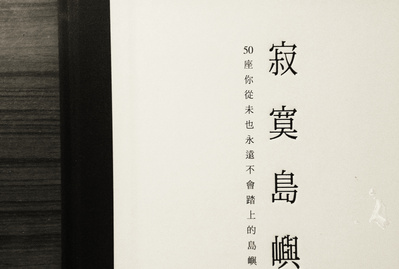 寂寞島嶼
50座你從未也永遠不會踏上的島嶼